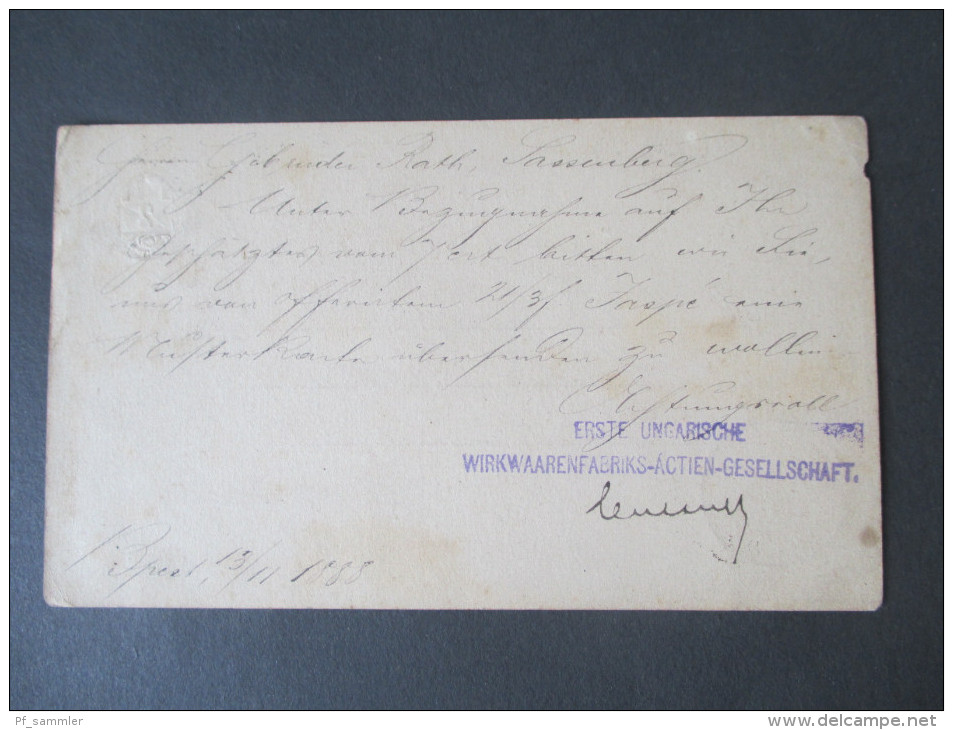 Herrn Gebrüder Rath, Sassenberg.
Unter Bezugnahme auf Ihr
geschätztes vom bitten wir Sie,
uns von offerirtem 24/3f. Jaspé eine
Musterkarte übersenden zu wollen
Achtungsvoll
ERSTE UNGARISCHE
WIRKWAARENFABRIKS-ACTIEN-GESELLSCHAFT.
Bpest, 13/11 1888
Pf_sammler
www.delcampe.net